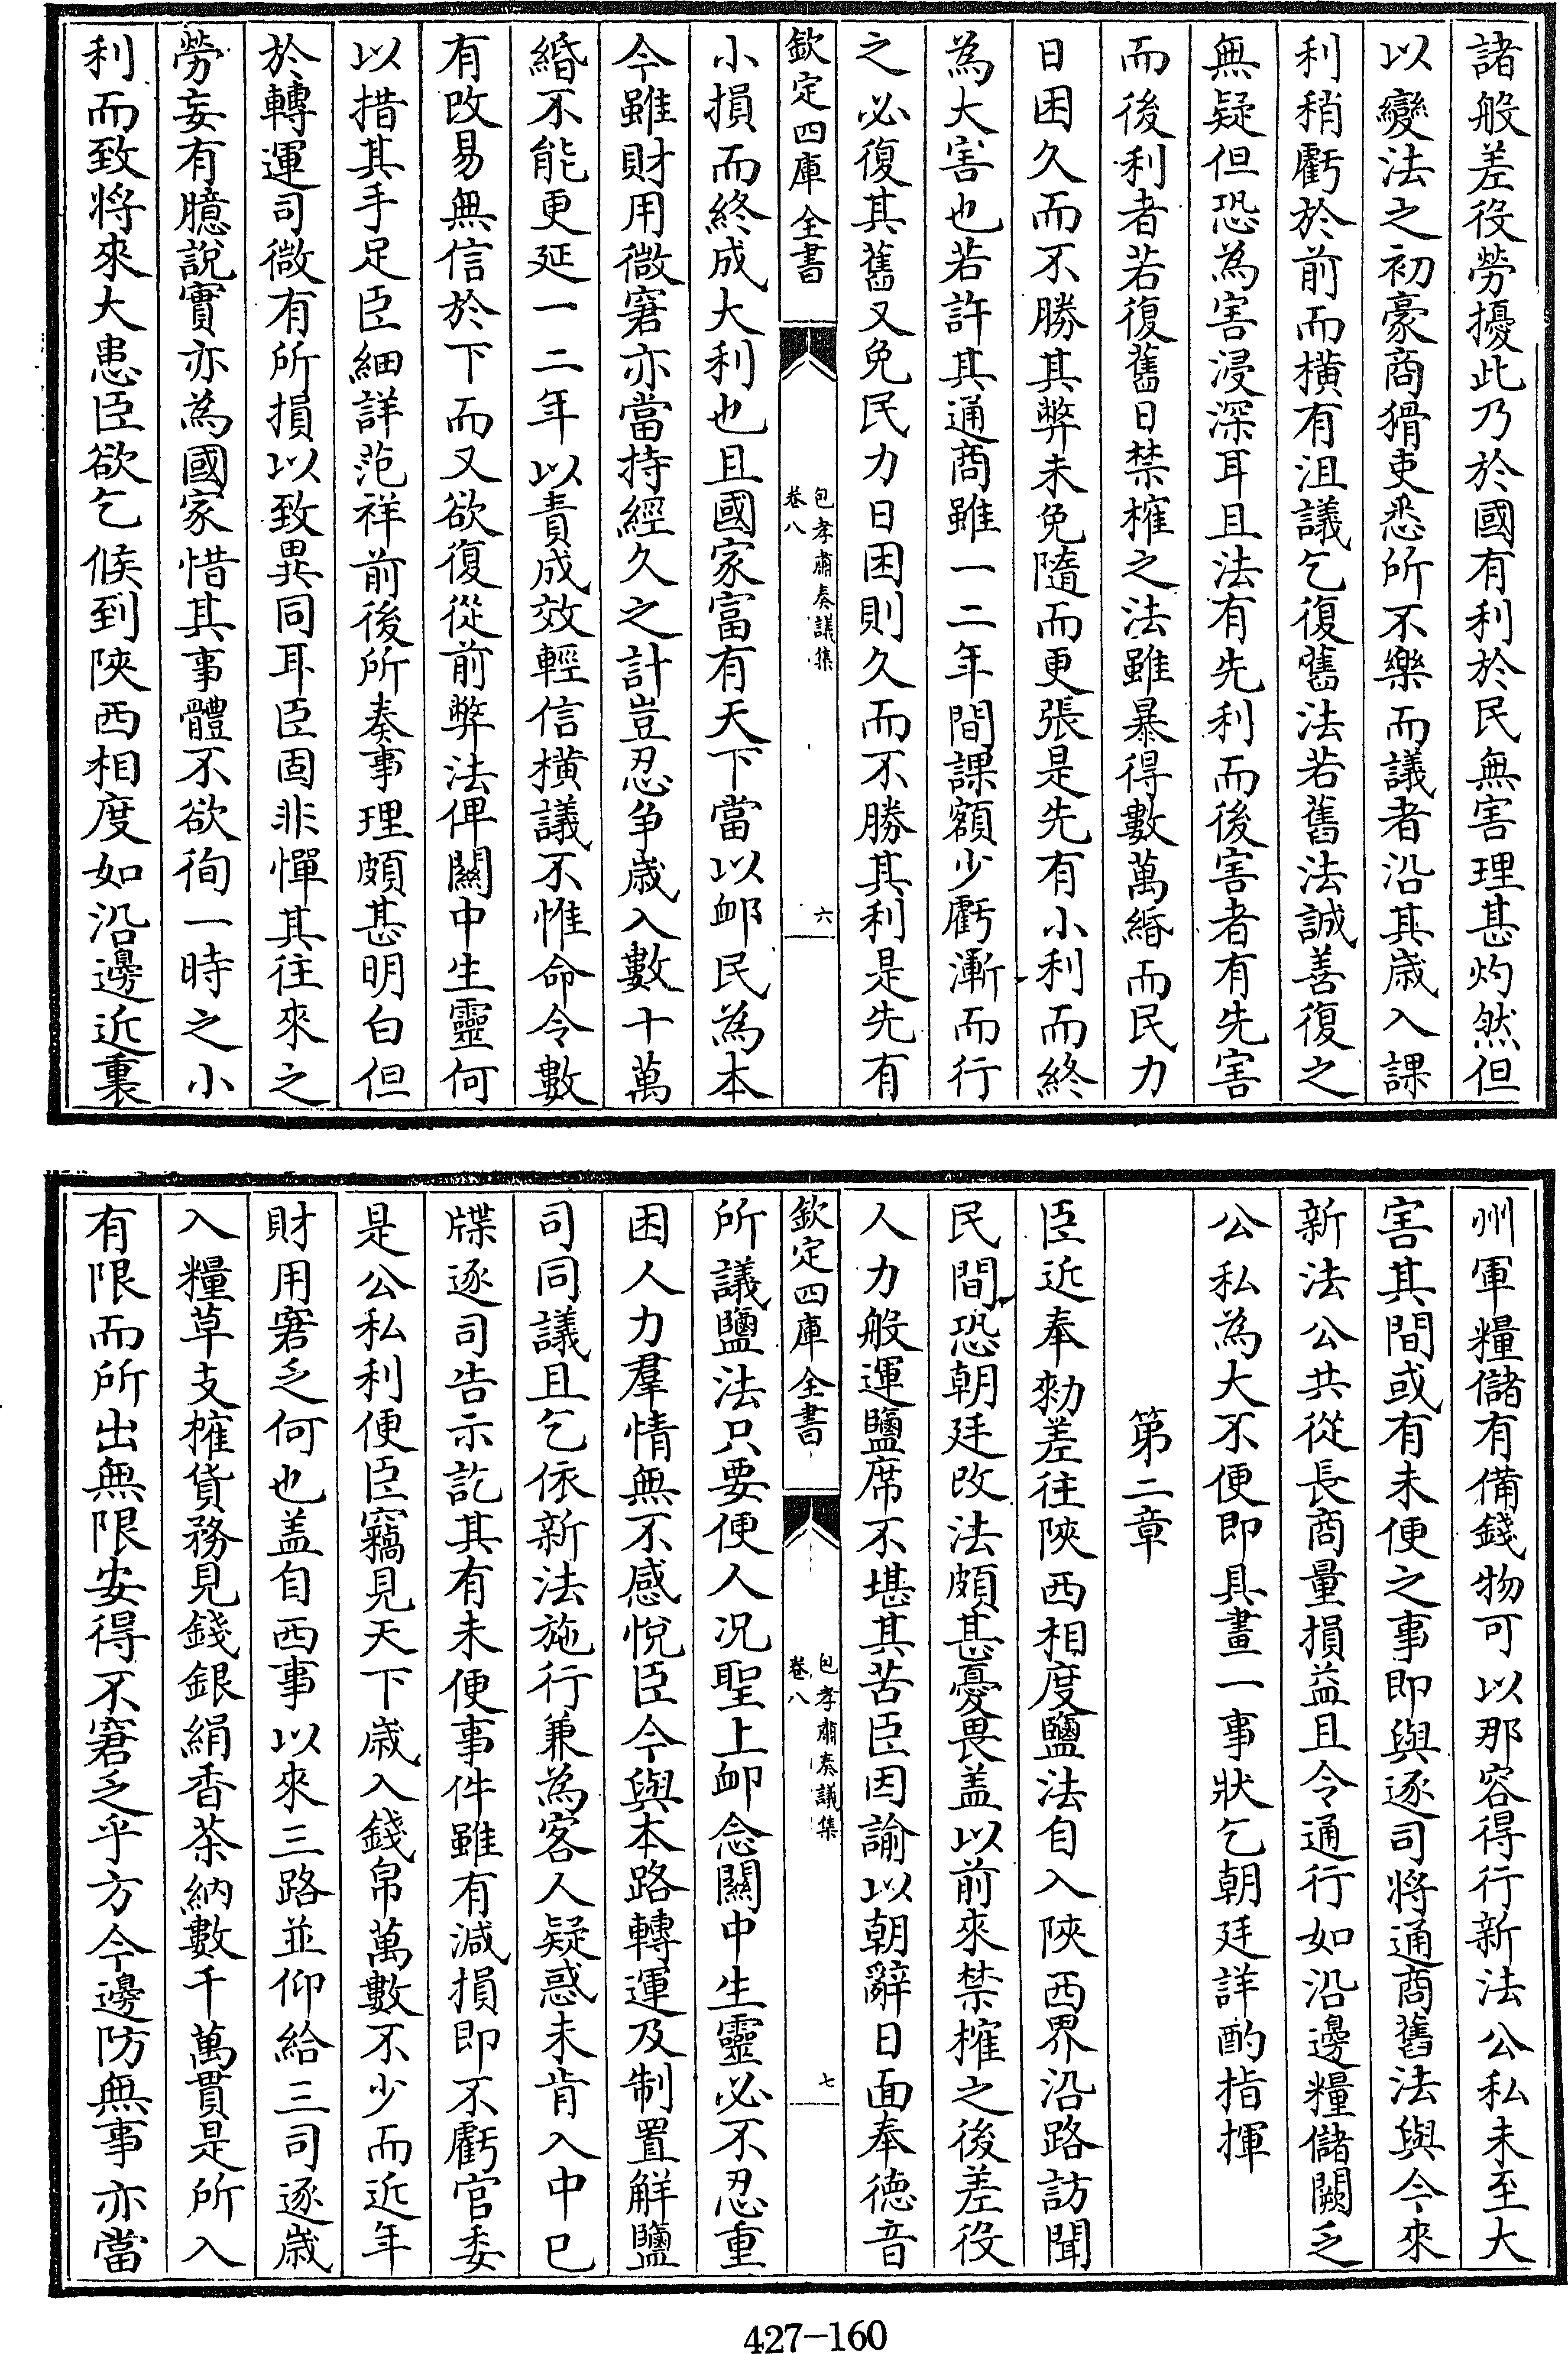 諸般差役勞擾此乃於國有利於民無害理甚灼然但
以變法之初豪商猾吏悉所不樂而議者沿其歳入課
利稍虧於前而橫有沮議乞復舊法若舊法誠善復之
無疑但恐為害浸深耳且法有先利而後害者有先害
而後利者若復舊日禁榷之法雖暴得數萬緡而民力
日困久而不勝其弊未免隨而更張是先有小利而終
為大害也若許其通商雖一二年間課額少虧漸而行
之必復其舊又免民力日困則久而不勝其利是先有
欽定四庫全書
包孝肅奏議集
卷八
六
小損而終成大利也且國家富有天下當以䘏民為本
今雖財用微窘亦當持經久之計豈忍爭歳入數十萬
緡不能更延一二年以責成效輕信橫議不惟命令數
有改易無信於下而又欲復從前弊法俾關中生靈何
以措其手足臣細詳范祥前後所奏事理頗甚明白但
於轉運司微有所損以致異同耳臣固非憚其往來之
勞妄有臆說實亦為國家惜其事體不欲徇一時之小
利而致將來大患臣欲乞候到陝西相度如沿邊近裏
州軍糧儲有備錢物可以那容得行新法公私未至大
害其間或有未便之事即與逐司將通商舊法與今來
新法公共從長商量損益且令通行如沿邊糧儲闕乏
公私為大不便即具畫一事狀乞朝廷詳酌指揮
第二章
臣近奉勑差往陝西相度鹽法自入陝西界沿路訪聞
民間恐朝廷改法頗甚憂畏盖以前來禁榷之後差役
人力般運鹽席不堪其苦臣因諭以朝辭日面奉德音
欽定四庫全書
包孝肅奏議集
卷八
七
所議鹽法只要便人況聖上䘏念關中生靈必不忍重
困人力羣情無不感悅臣今與本路轉運及制置解鹽
司同議且乞依新法施行兼為客人疑惑未肯入中已
牒逐司告示訖其有未便事件雖有減損即不虧官委
是公私利便臣竊見天下歳入錢帛萬數不少而近年
財用窘乏何也盖自西事以來三路並仰給三司逐歳
入糧草支榷貨務見錢銀絹香茶納數千萬貫是所入
有限而所出無限安得不窘乏乎方今邊防無事亦當
427-160